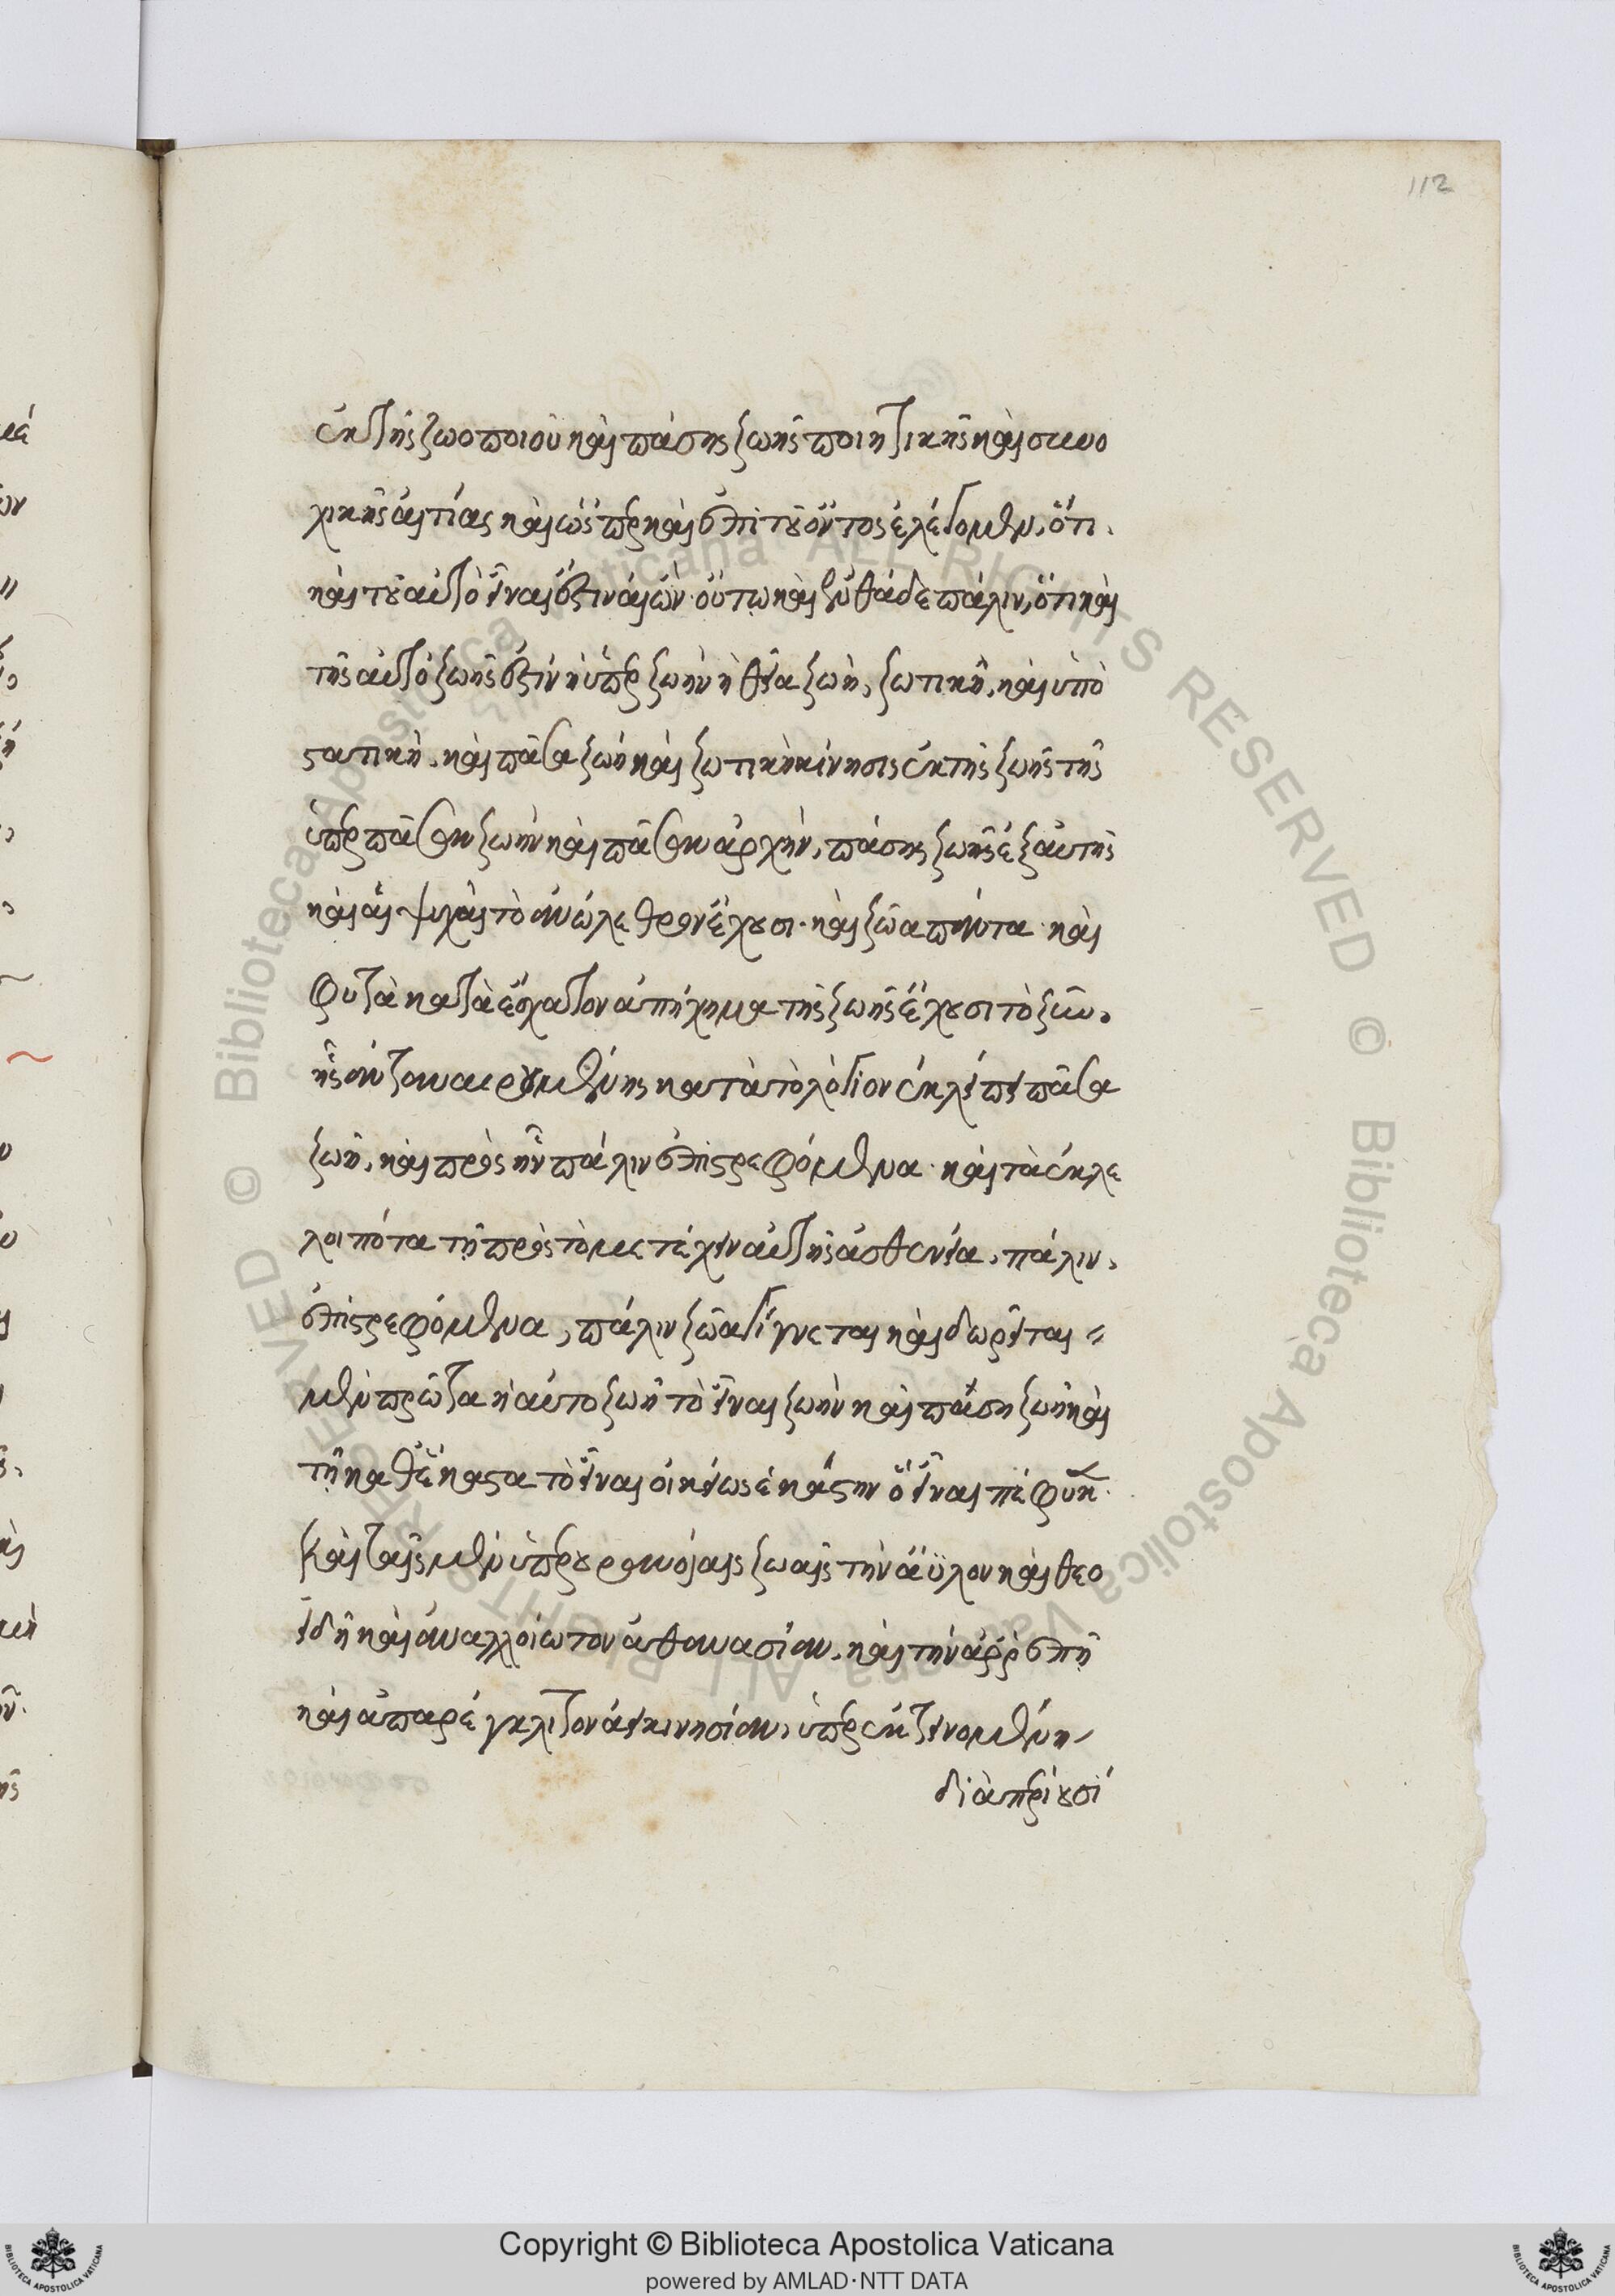 112
ἐκ τῆς ζωοποιοῦ καὶ πάσης ζωῆς ποιητικῆς καὶ συνο
χικῆς αἰτίας καὶ ὥσπερ καὶ ἐπὶ τοῦ ὄντος ἐλέγομεν, ὅτι.
καὶ τοῦ αὐτὸ εἶναι ἐστιν αἰών· οὕτω καὶ ἐνθάδε πάλιν, ὅτι καὶ
τῆς αὐτὸ ζωῆς ἐστὶν ἡ ὑπὲρ ζωὴν ἡ θεία ζωὴ, ζωτικὴ, καὶ ὑπὸ
στατικὴ. καὶ πᾶσα ζωὴ καὶ ζωτικὴ κίνησις ἐκ τῆς ζωῆς τῆς
ὑπὲρ πᾶσαν ζωὴν καὶ πᾶσαν ἀρχὴν, πάσης ζωῆς ἐξ αὐτῆς
καὶ αἱ ψυχαὶ τὸ ἀνώλεθρον ἔχουσι· καὶ ζῶα πάντα καὶ
φυτὰ κατὰ ἔσχατον ἀπήχημα τῆς ζωῆς ἔχουσι τὸ ζῆν.
ἧς ἀνταναιρουμένης κατὰ τὸ λόγιον ἐκλείπει πᾶσα
ζωὴ, καὶ πρὸς ἣν πάλιν ἐπιστρεφόμενα· καὶ τὰ ἐκλε
λοιπότα τῇ πρὸς τὸ μετέχειν αὐτῆς ἀσθενεία, πάλιν,
ἐπιστρεφόμενα, πάλιν ζῶα γίγνεται καὶ δωρεῖται
μὲν πρῶτα ἡ αὐτοζωῆ τὸ εἶναι ζωὴν καὶ πάση ζωῆ καὶ
τῇ καθ' ἕκαστα τὸ εἶναι οἰκείως ἑκάστην ὃ εἶναι πέφυκεν·
Καὶ ταῖς μὲν ὑπερουρανίαις ζωαῖς τὴν ἄϋλον καὶ θεο
ειδῆ καὶ ἀναλλοίωτον ἀθανασίαν, καὶ τὴν ἀρρεπῆ
καὶ ἀπαρέγκλιτον ἀεικινησίαν, ὑπερεκτεινομένη
διὰ περιουσί
Copyright © Biblioteca Apostolica Vaticana
powered by AMLAD·NTT DATA